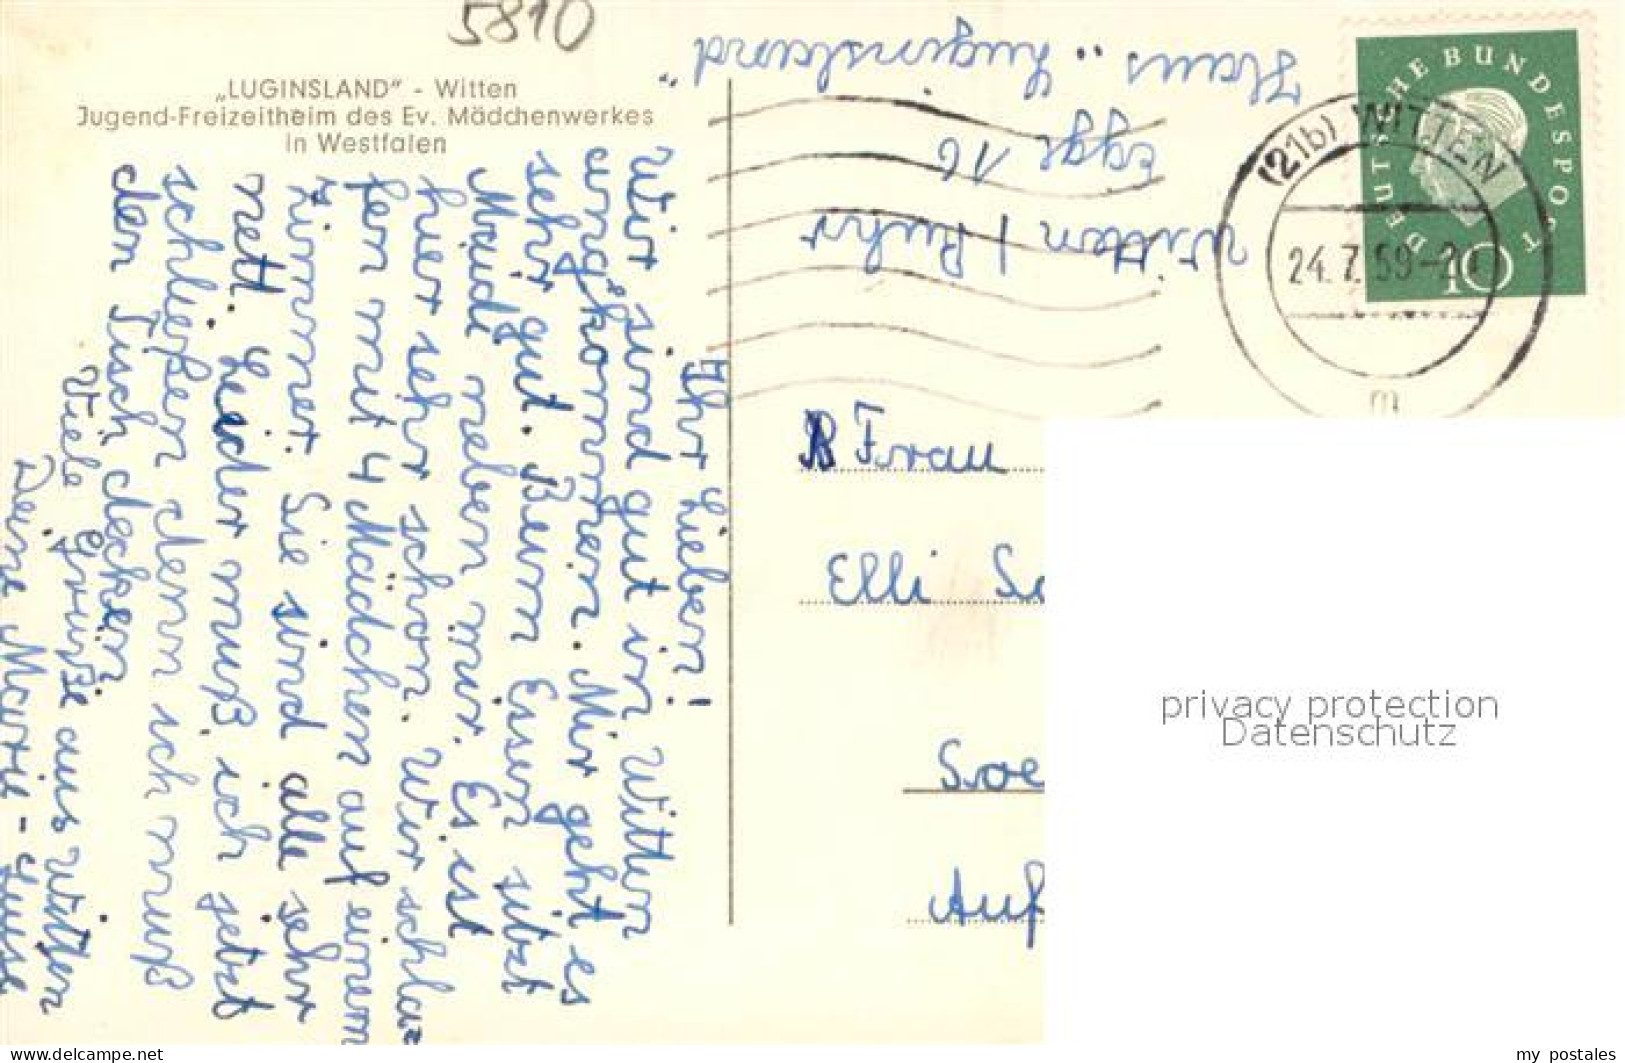 5810
„LUGINSLAND" - Witten
Jugend-Freizeitheim des Ev. Mädchenwerkes
in Westfalen
Haus „Luginsland"
Egge 16
Witten / Ruhr
DEUTSCHE BUNDESPOST
10
(21b) WITTEN
24.7.59-20
m
Ihr Lieben!
Wir sind gut in Witten
angekommen. Mir geht es
sehr gut. Beim Essen sitzt
Maidi neben mir. Es ist
hier sehr schön. Wir schla-
fen mit 4 Mädchen auf einem
Zimmer. Sie sind alle sehr
nett. Leider muß ich jetzt
schließen denn ich muß
den Tisch decken.
Viele Grüße aus Witten
Deine Marie-Luise
Frau
Elli Sc
Soe
Auf
privacy protection
Datenschutz
www.delcampe.net
my_postales